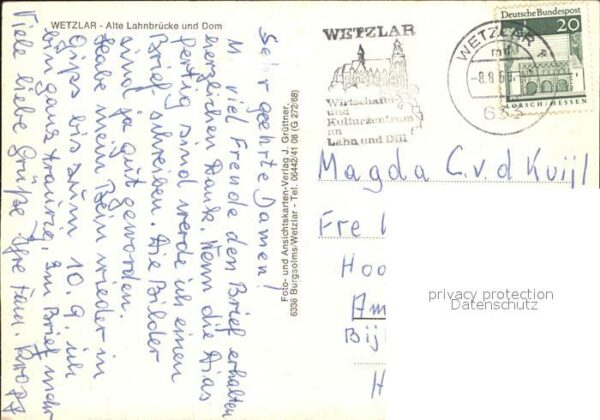 WETZLAR - Alte Lahnbrücke und Dom
Sehr geehrte Damen!
M viel Freude den Brief erhalten
herzlichen Dank. Wenn die Dias
fertig sind werde ich einen
Brief schreiben. Die Bilder
sind ja gut geworden.
Habe mein Bein wieder in
Gips bis zum 10.9. ich
bin ganz traurig. Im Brief mehr
Viele liebe Grüße Ihre Fam. Kropp
Foto- und Ansichtskarten-Verlag J. Grüttner,
6336 Burgsolms/Wetzlar - Tel. 06442/41 08 (G 272/68)
WETZLAR
Wirtschafts
und
Kulturzentrum
an
Lahn und Dill
WETZLAR
-8.8.69
633
Deutsche Bundespost
20
LORSCH/HESSEN
Magda C.v.d Kuijl
Fre
Hoo
Am
Bij
H
privacy protection
Datenschutz